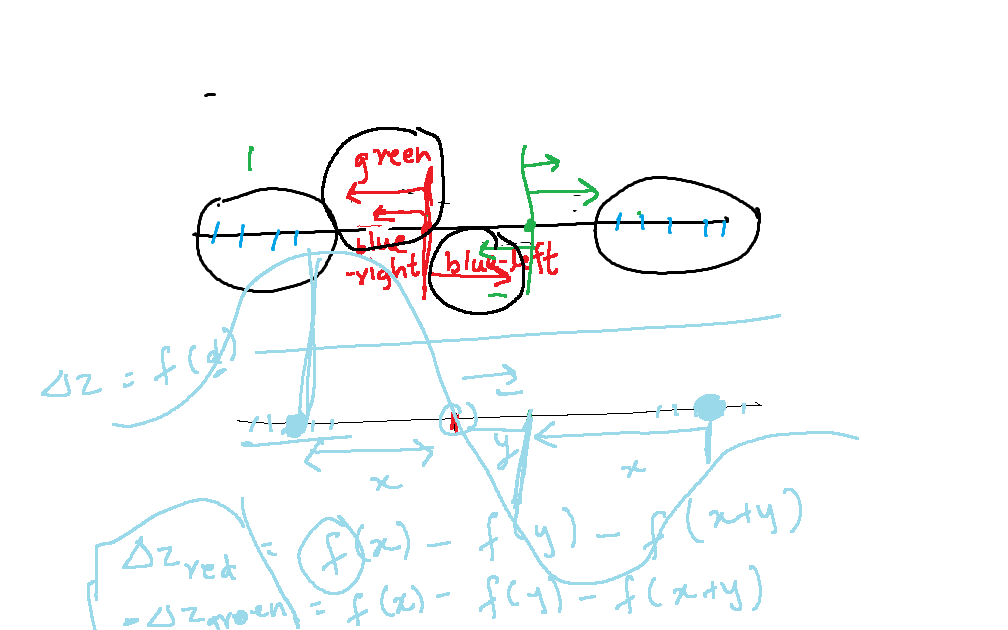 green
blue
-right
blue-left
Δz = f(d)
x
y
x
Δz red = f(x) - f(y) - f(x+y)
-Δz green = f(x) - f(y) - f(x+y)